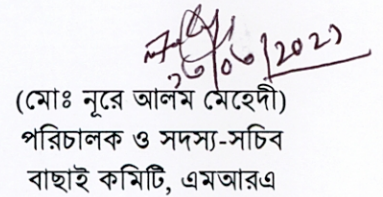 (মোঃ নূরে আলম মেহেদী)
পরিচালক ও সদস্য-সচিব
বাছাই কমিটি, এমআরএ